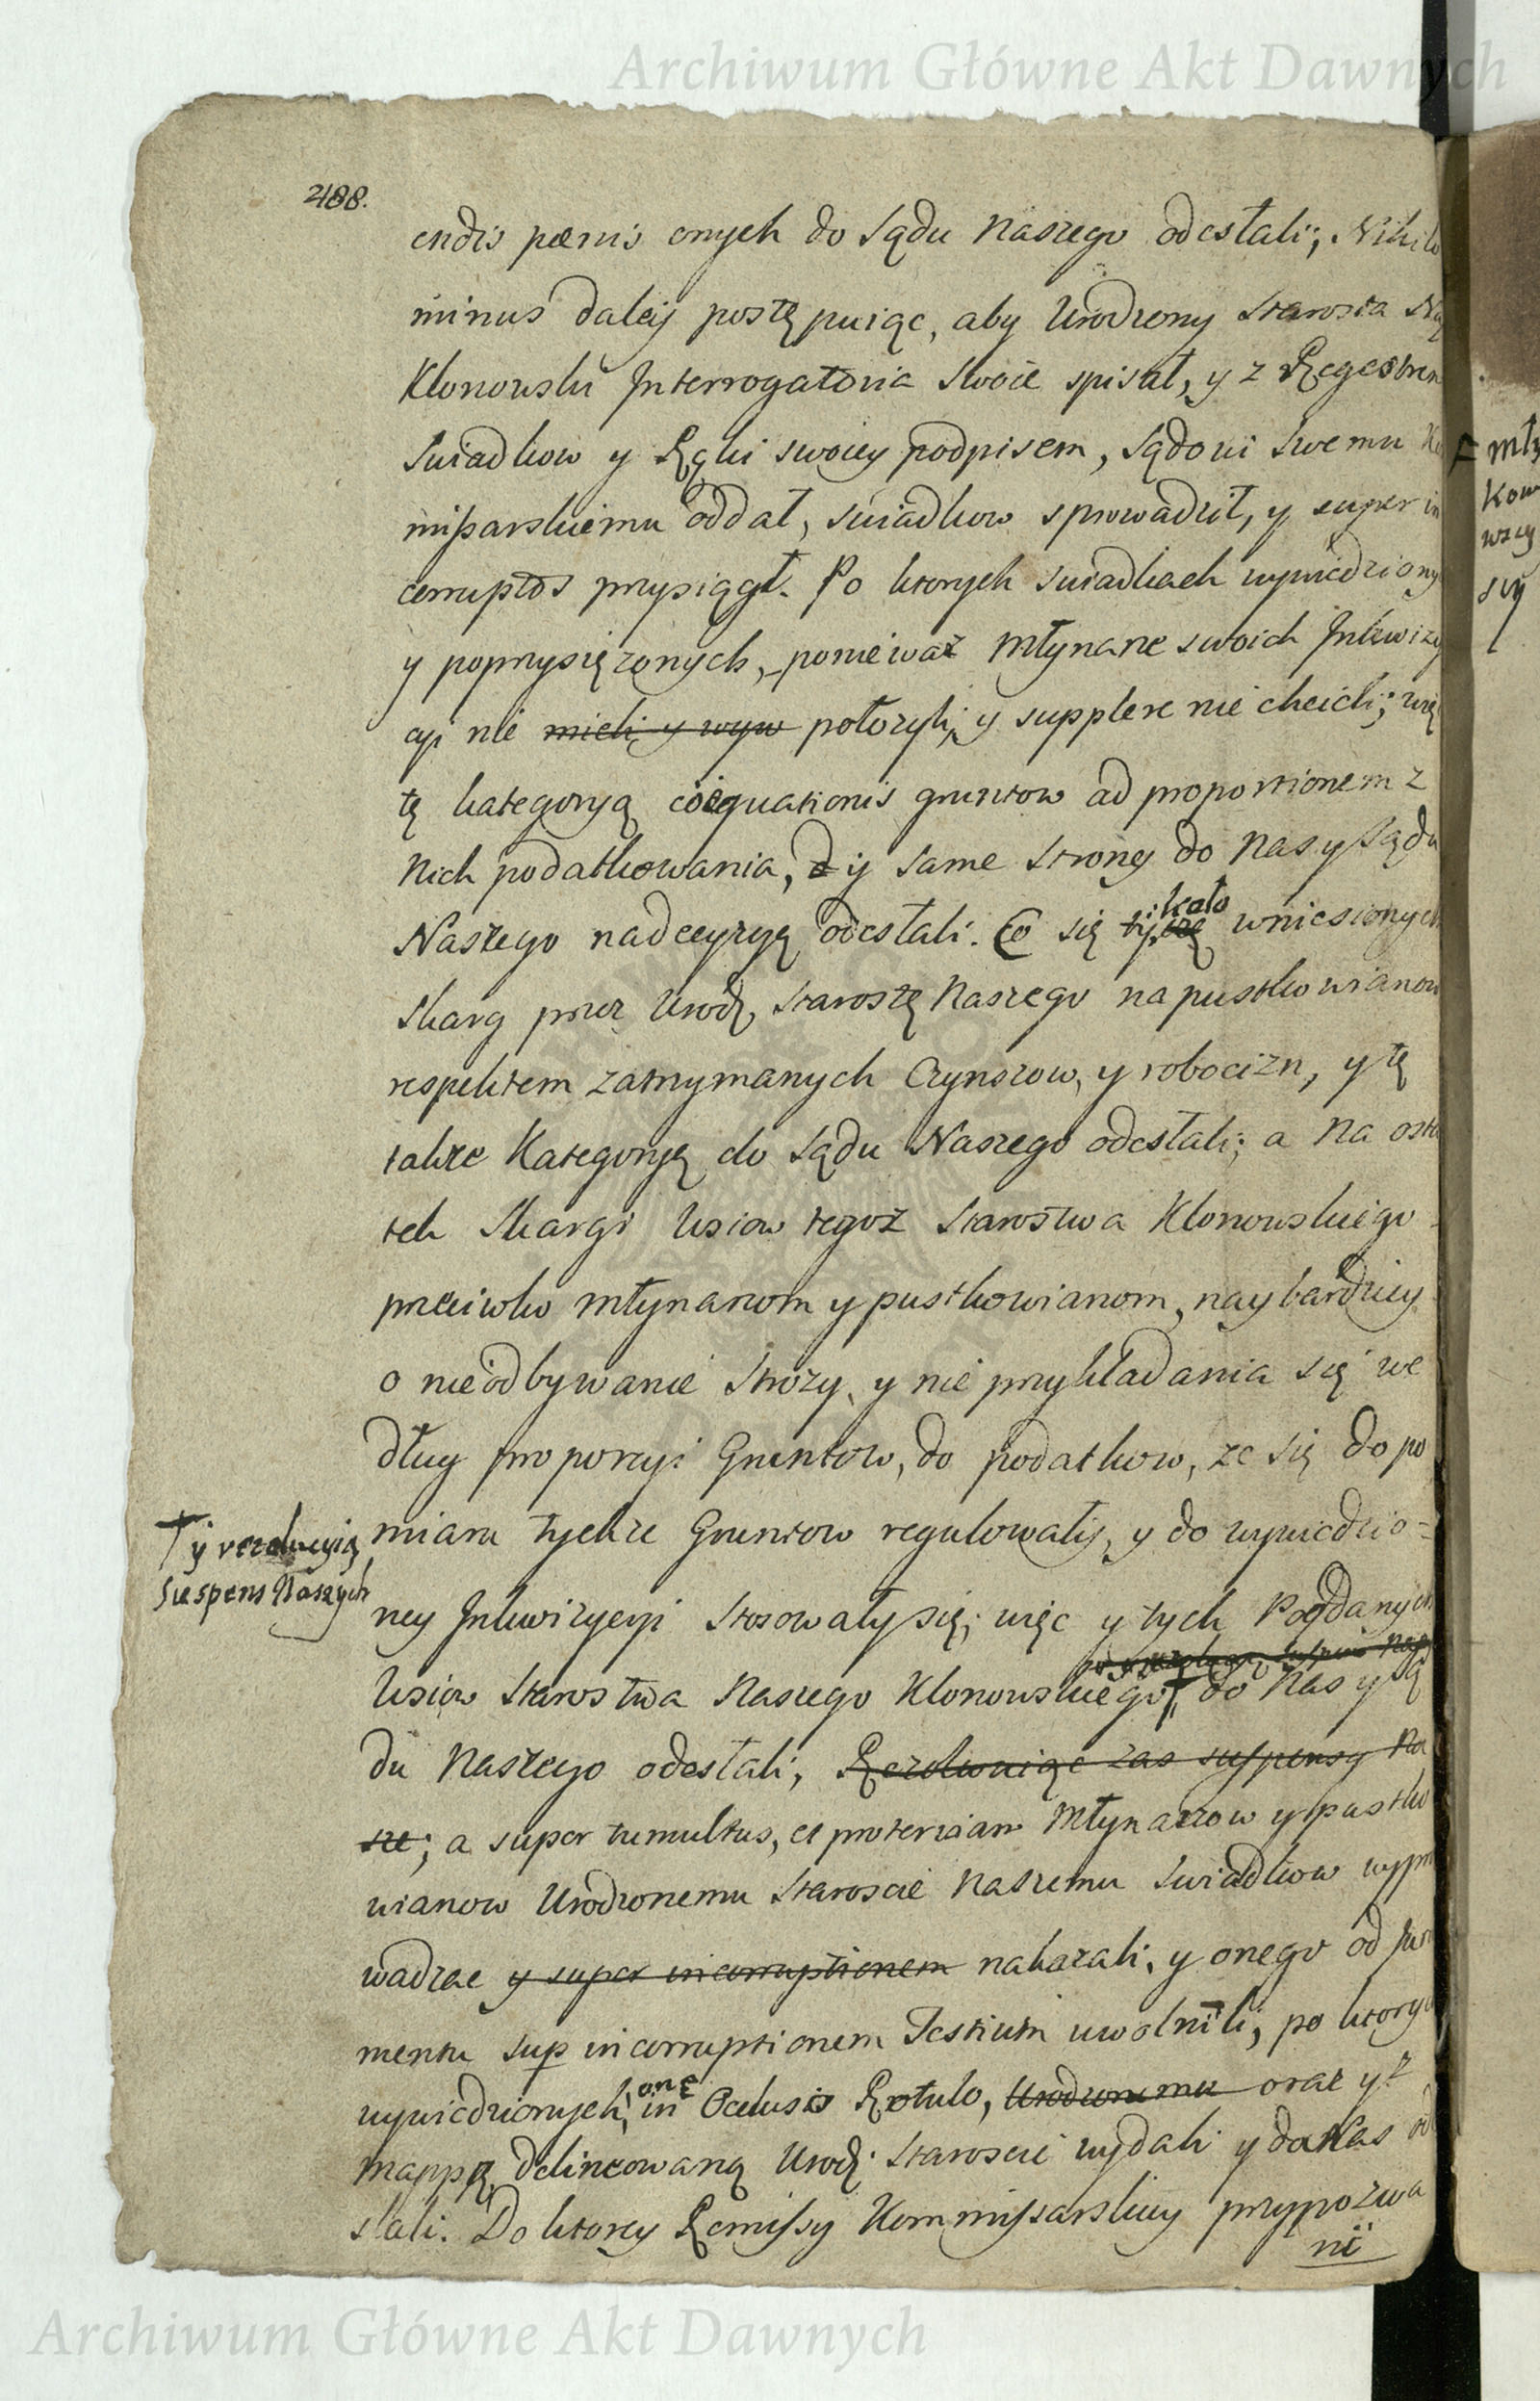 Archiwum Główne Akt Dawnych
488.
endis pœnis onych do Sądu Naszego odesłali; Nihilo
minus daley postępuiąc, aby Urodzony Starosta Na
Klonowski Interrogatoria swoie spisał, y z Regestrem
Swiadkow y Ręki swoiey podpisem, Sądowi swemu Ko
mißarskiemu oddał, swiadkow sprowadził, y super in
corruptos przysiągł. Po ktorych swiadkach wywiedziony
y poprzysięzonych, ponieważ Młynarze swoich Inkwizy
cyi nie mieli y wyw położyli, y supplere nie chcieli; więc
tę kategoryą coëquationis gruntow ad proportionem z
Nich podatkowania, y same strony do Nas y Sądu
Naszego na decyzyę odesłali. Co się tycze kało wniesionych
Skarg przez Urodz. Starostę Naszego na pustkowianow
respektem zatrzymanych Czynszow, y robocizn, y tę
takze Kategoryę do Sądu Naszego odesłali; a na osta
tek Skargi Wsiow tegoz Starostwa Klonowskiego
przeciwko młynarzom y pustkowianom, naybardziey
o nieodbywanie Strozy, y nie przykładania się we
dług proporcyi Gruntow, do podatkow, ze się do po
miaru tychze Gruntow regulowały, y do wywiedzio=
† y rezolucyią
Suspens Naszych
ney Inkwizycyi stosowały się; więc y tych Poddanych
Wsiow Starostwa Naszego Klonowskiego † do Nas y Są
du Naszego odesłali, Rezolwuiąc zas suspensy Na
sze; a super tumultus, et proterviam Młynarzow y pustko
wianow Urodzonemu Staroscie Naszemu Swiadkow wypro
wadzac y super incorruptionem nakazali, y onego od Jura
mentu sup incorruptionem Testium uwolnili, po ktorych
wywiedzionych, one in Ocluso Rotulo, Urodzonemu oraz y
mappę delineowaną Urodz. Staroscie wydali y do Nas od
słali. Do ktorey Remissy Kommissarskiey przypozwa
ni
F Mły
Kow
wszy
swy
Archiwum Główne Akt Dawnych